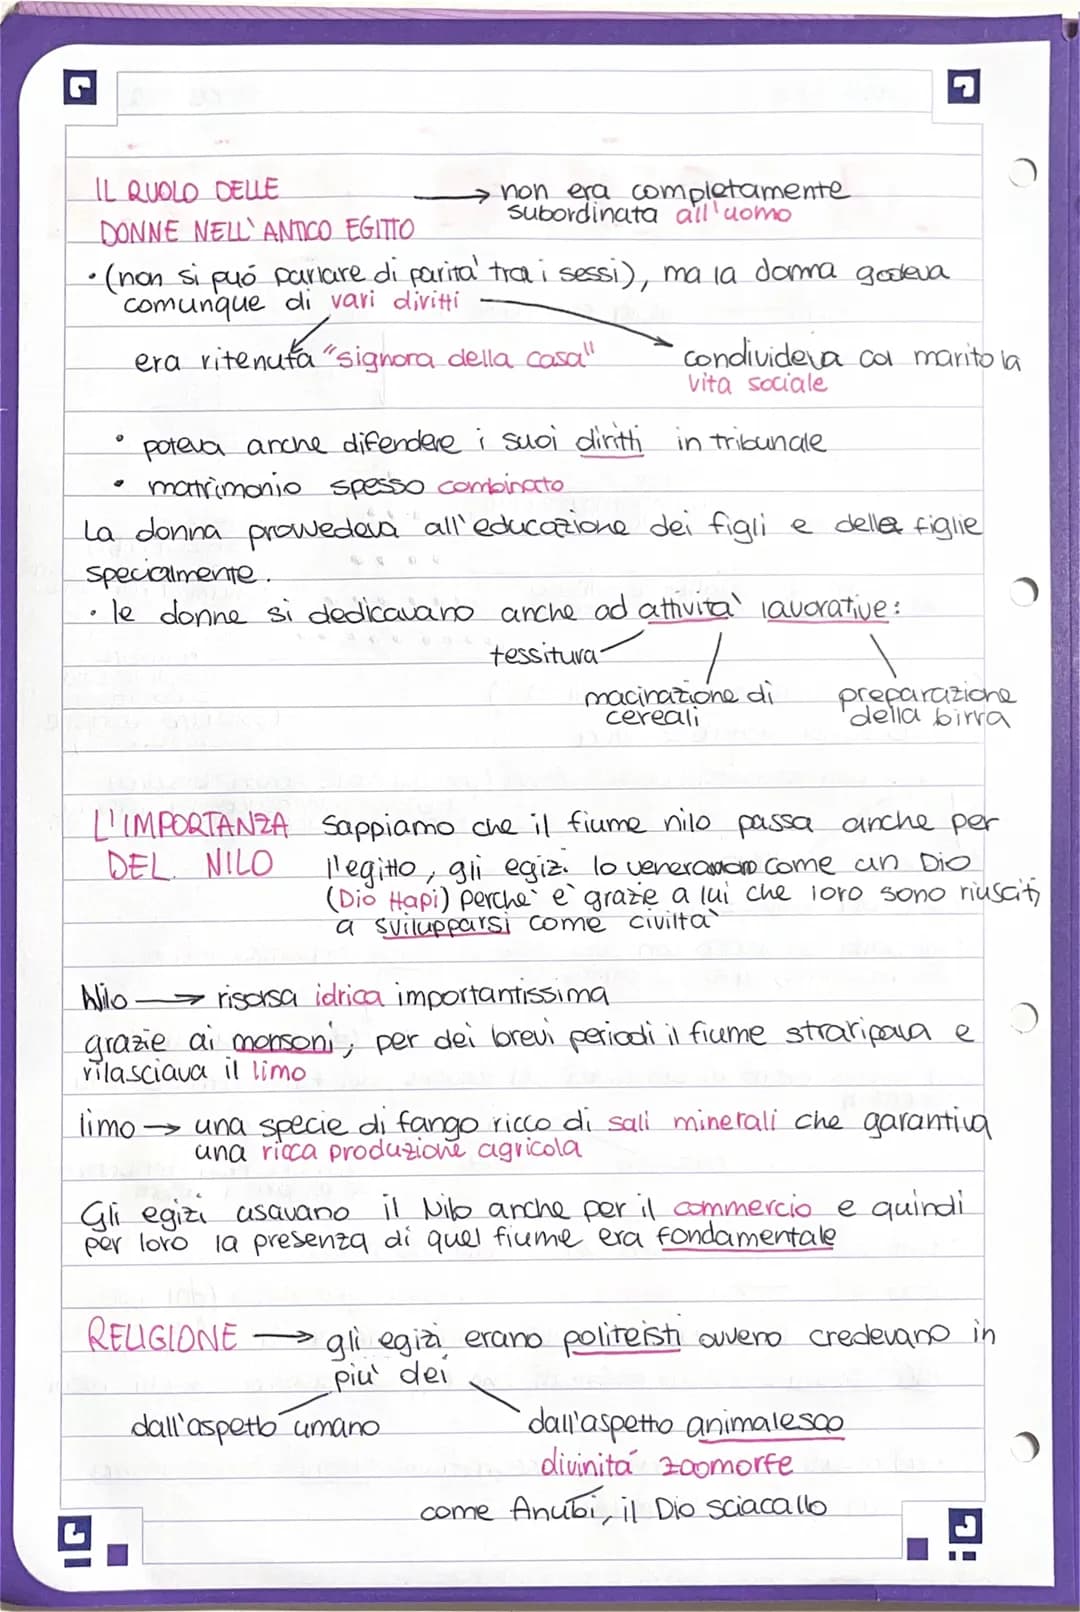 IL RUOLO DELLE
DONNE NELL'ANTICO EGITTO
→ non era completamente
subordinata all'uomo
• (non si può parlare di parità tra i sessi), ma la donna godeva
comunque di vari diritti
era ritenuta "signora della casa"
condivideva col marito la
vita sociale
• poteva anche difendere i suoi diritti in tribunale
• matrimonio spesso combinato
La donna provvedeva all'educazione dei figli e delle figlie
specialmente.
• le donne si dedicavano anche ad attività lavorative:
tessitura
macinazione di
cereali
preparazione
della birra
L'IMPORTANZA
DEL NILO
Sappiamo che il fiume nilo passa anche per
l'egitto, gli egizi lo veneravano come un Dio
(Dio Hapi) perché è grazie a lui che loro sono riusciti
a svilupparsi come civiltà
Nilo → risorsa idrica importantissima
grazie ai monsoni, per dei brevi periodi il fiume straripava e
rilasciava il limo
limo → una specie di fango ricco di sali minerali che garantiva
una ricca produzione agricola
Gli egizi usavano il Nilo anche per il commercio e quindi
per loro la presenza di quel fiume era fondamentale
RELIGIONE → gli egizi erano politeisti ovvero credevano in
più dei
dall'aspetto umano
dall'aspetto animalesco
divinità zoomorfe
come Anubi, il Dio sciacallo